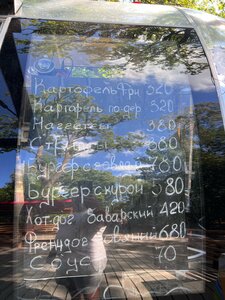 Картофель фри 320
Картофель по-дер 320
Наггетсы 380
Стрипсы 680
Бургер с говяд 780
Бургер с курой 580
Хот-дог баварский 420
Френч дог 680
Соус 70